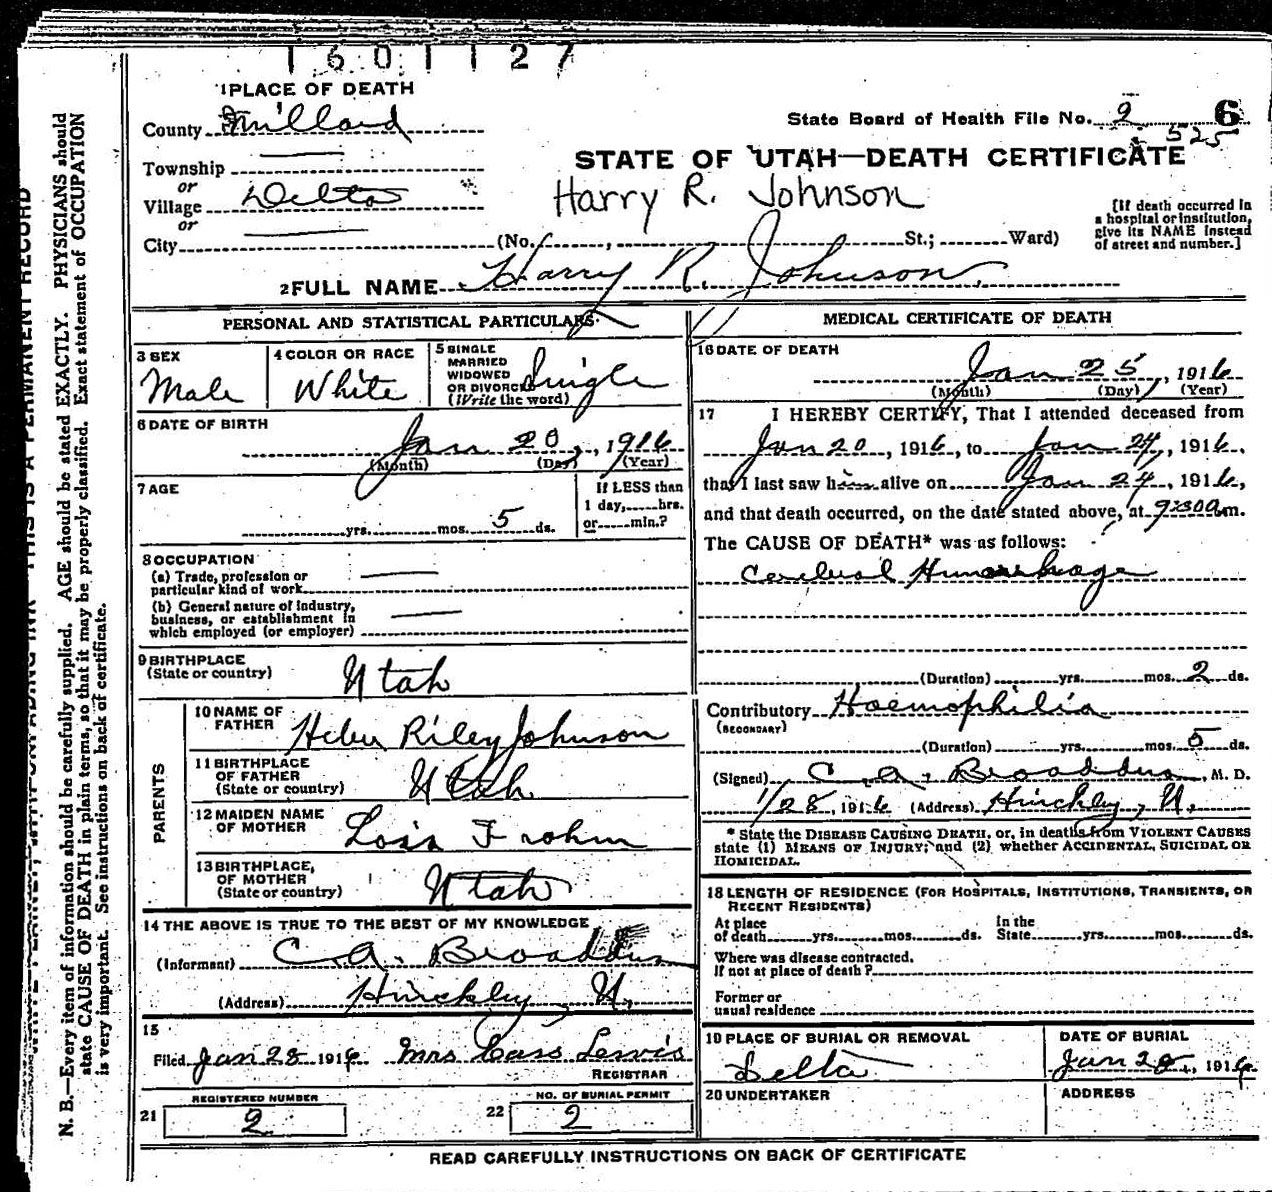 1601127
1 PLACE OF DEATH
County Millard
State Board of Health File No. 2 6
525
Township
STATE OF UTAH—DEATH CERTIFICATE
or
Village Delta
Harry R. Johnson
or
City (No. , St.; Ward)
[If death occurred in
a hospital or institution,
give its NAME instead
of street and number.]
2 FULL NAME Harry R. Johnson
PERSONAL AND STATISTICAL PARTICULARS
3 SEX
Male
4 COLOR OR RACE
White
5 SINGLE
MARRIED
WIDOWED
OR DIVORCED
(Write the word)
Single
6 DATE OF BIRTH
Jan 20, 1916
(Month) (Day) (Year)
7 AGE
yrs. mos. 5 ds.
If LESS than
1 day, hrs.
or min.?
8 OCCUPATION
(a) Trade, profession or
particular kind of work
(b) General nature of industry,
business, or establishment in
which employed (or employer)
9 BIRTHPLACE
(State or country)
Utah
PARENTS
10 NAME OF
FATHER
Heber Riley Johnson
11 BIRTHPLACE
OF FATHER
(State or country)
Utah
12 MAIDEN NAME
OF MOTHER
Lois Frohm
13 BIRTHPLACE,
OF MOTHER
(State or country)
Utah
14 THE ABOVE IS TRUE TO THE BEST OF MY KNOWLEDGE
(Informant) C. A. Broaddus
(Address) Hinckley, U.
15
Filed Jan 28 1916 Mrs Cass Lewis
REGISTRAR
21 REGISTERED NUMBER
2
22 NO. OF BURIAL PERMIT
2
MEDICAL CERTIFICATE OF DEATH
16 DATE OF DEATH
Jan 25, 1916
(Month) (Day) (Year)
17 I HEREBY CERTIFY, That I attended deceased from
Jan 20, 1916, to Jan 24, 1916,
that I last saw him alive on Jan 24, 1916,
and that death occurred, on the date stated above, at 9:30 a.m.
The CAUSE OF DEATH* was as follows:
Cerebral Hemorrhage
(Duration) yrs. mos. 2 ds.
Contributory Haemophilia
(SECONDARY)
(Duration) yrs. mos. 5 ds.
(Signed) C. A. Broaddus, M. D.
1/28, 1916 (Address) Hinckley, U.
* State the DISEASE CAUSING DEATH, or, in deaths from VIOLENT CAUSES
state (1) MEANS OF INJURY; and (2) whether ACCIDENTAL, SUICIDAL OR
HOMICIDAL.
18 LENGTH OF RESIDENCE (FOR HOSPITALS, INSTITUTIONS, TRANSIENTS, OR
RECENT RESIDENTS)
At place
of death yrs. mos. ds.
In the
State yrs. mos. ds.
Where was disease contracted.
If not at place of death?
Former or
usual residence
19 PLACE OF BURIAL OR REMOVAL
Delta
DATE OF BURIAL
Jan 28, 1916
20 UNDERTAKER
ADDRESS
READ CAREFULLY INSTRUCTIONS ON BACK OF CERTIFICATE
THIS IS A PERMANENT RECORD
N. B.—Every item of information should be carefully supplied. AGE should be stated EXACTLY. PHYSICIANS should
state CAUSE OF DEATH in plain terms, so that it may be properly classified. Exact statement of OCCUPATION
is very important. See instructions on back of certificate.